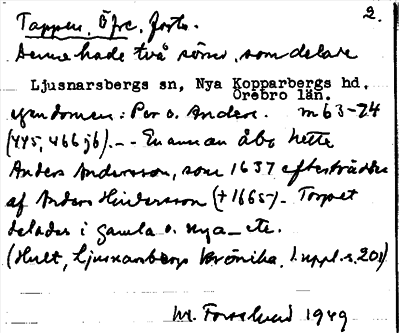 Tappen, Öfre. forts. 2.
Denne hade två söner, som delade
Ljusnarsbergs sn, Nya Kopparbergs hd.
Örebro län.
egendomen: Per o. Anders. m 63-74
(445, 466 jb). -- En annan åbo hette
Anders Andersson, som 1637 efterträddes
af Anders Hindersson († 1665). Torpet
delades i gamla o. nya - etc.
(Hult, Ljusnarsbergs krönika, 1. uppl. s. 201)
M. Forslund 1949